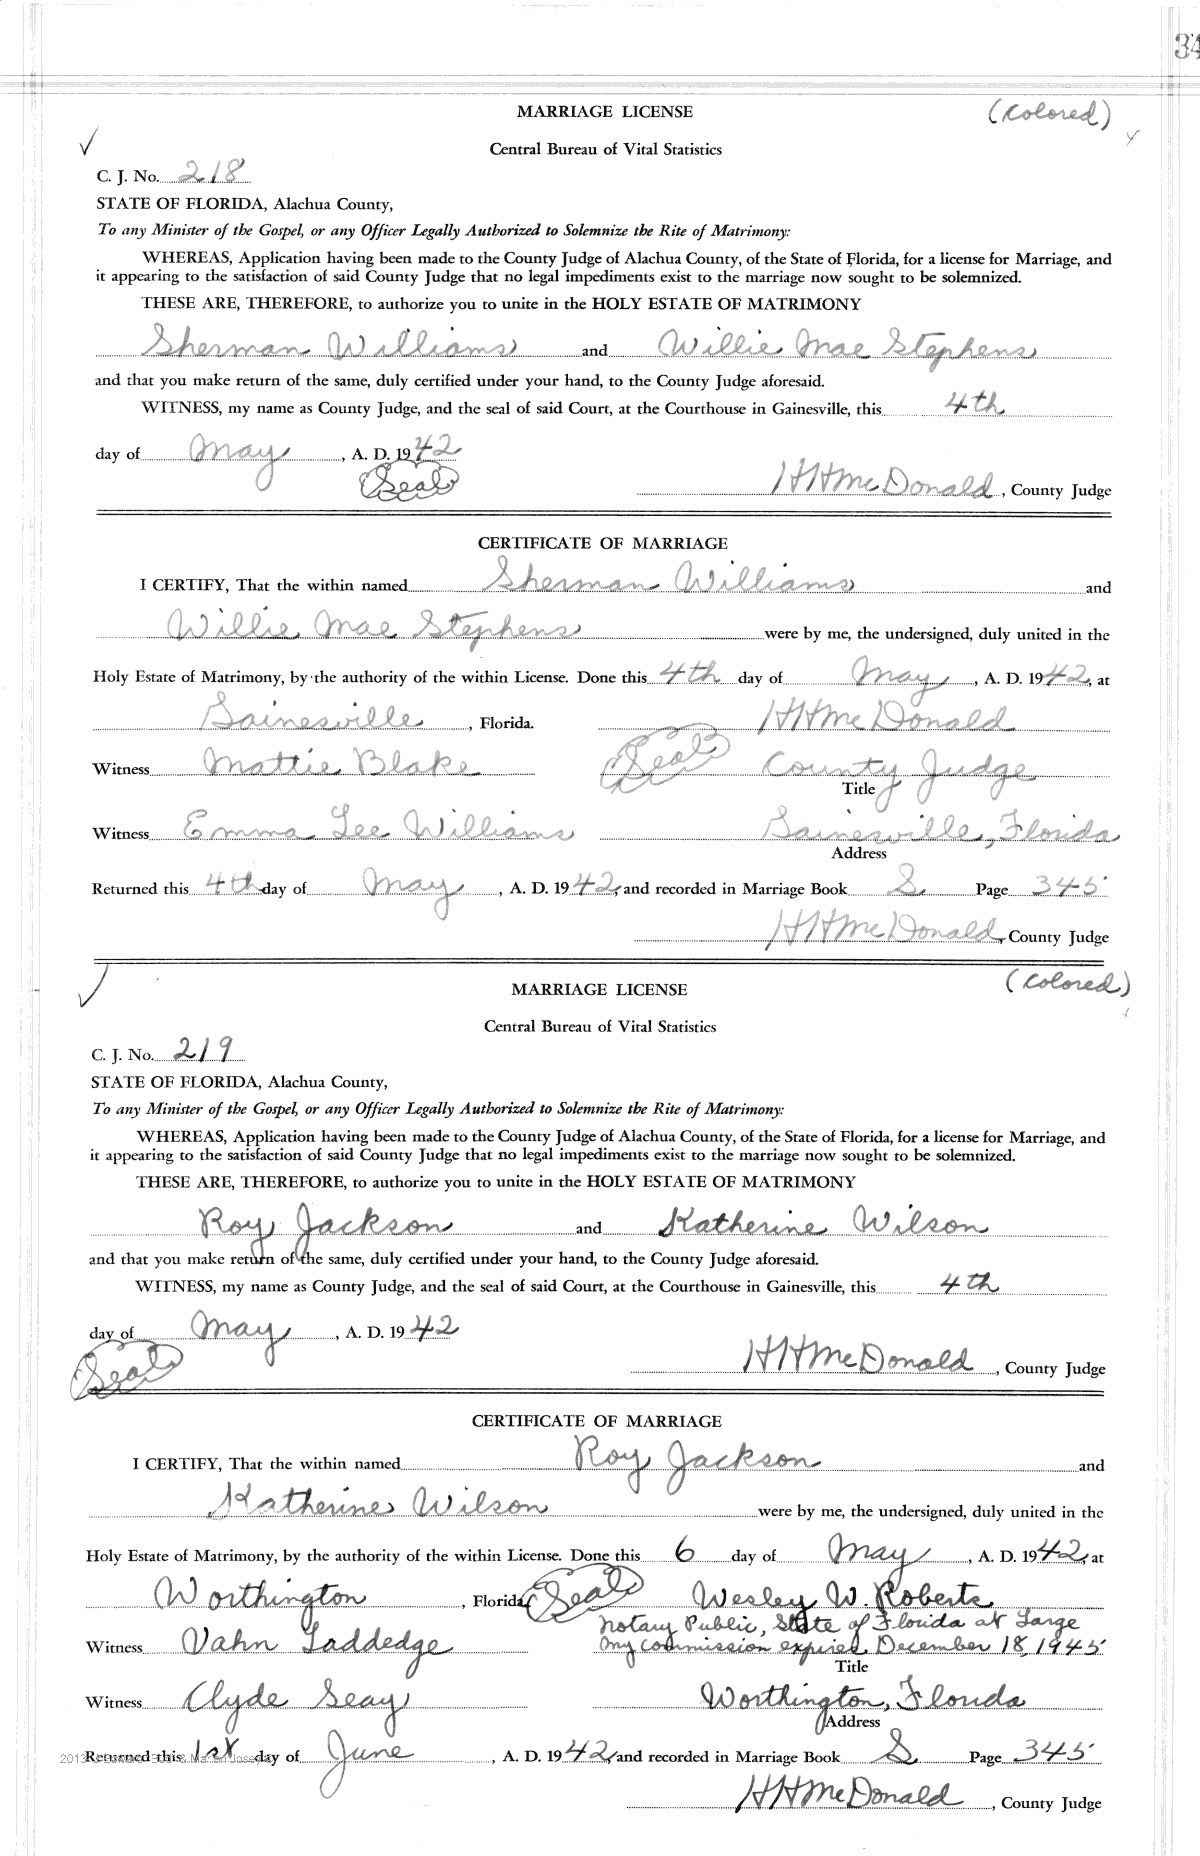 34
MARRIAGE LICENSE (Colored)
Central Bureau of Vital Statistics
C. J. No. 218
STATE OF FLORIDA, Alachua County,
To any Minister of the Gospel, or any Officer Legally Authorized to Solemnize the Rite of Matrimony:
WHEREAS, Application having been made to the County Judge of Alachua County, of the State of Florida, for a license for Marriage, and
it appearing to the satisfaction of said County Judge that no legal impediments exist to the marriage now sought to be solemnized.
THESE ARE, THEREFORE, to authorize you to unite in the HOLY ESTATE OF MATRIMONY
Sherman Williams and Willie Mae Stephens
and that you make return of the same, duly certified under your hand, to the County Judge aforesaid.
WITNESS, my name as County Judge, and the seal of said Court, at the Courthouse in Gainesville, this 4th
day of May, A. D. 1942
(Seal) HHMcDonald, County Judge
CERTIFICATE OF MARRIAGE
I CERTIFY, That the within named Sherman Williams and
Willie Mae Stephens were by me, the undersigned, duly united in the
Holy Estate of Matrimony, by the authority of the within License. Done this 4th day of May, A. D. 1942, at
Gainesville, Florida. HHMcDonald
Witness Mattie Blake (Seal) County Judge
Title
Witness Emma Lee Williams Gainesville, Florida
Address
Returned this 4th day of May, A. D. 1942, and recorded in Marriage Book S Page 345
HHMcDonald, County Judge
MARRIAGE LICENSE (Colored)
Central Bureau of Vital Statistics
C. J. No. 219
STATE OF FLORIDA, Alachua County,
To any Minister of the Gospel, or any Officer Legally Authorized to Solemnize the Rite of Matrimony:
WHEREAS, Application having been made to the County Judge of Alachua County, of the State of Florida, for a license for Marriage, and
it appearing to the satisfaction of said County Judge that no legal impediments exist to the marriage now sought to be solemnized.
THESE ARE, THEREFORE, to authorize you to unite in the HOLY ESTATE OF MATRIMONY
Roy Jackson and Katherine Wilson
and that you make return of the same, duly certified under your hand, to the County Judge aforesaid.
WITNESS, my name as County Judge, and the seal of said Court, at the Courthouse in Gainesville, this 4th
day of May, A. D. 1942
(Seal) HHMcDonald, County Judge
CERTIFICATE OF MARRIAGE
I CERTIFY, That the within named Roy Jackson and
Katherine Wilson were by me, the undersigned, duly united in the
Holy Estate of Matrimony, by the authority of the within License. Done this 6 day of May, A. D. 1942, at
Worthington, Florida (Seal) Wesley W. Roberts
Notary Public, State of Florida at Large
Witness Vahn Laddedge My commission expires December 18, 1945
Title
Witness Clyde Seay Worthington, Florida
Address
Returned this 1st day of June, A. D. 1942, and recorded in Marriage Book S Page 345
HHMcDonald, County Judge